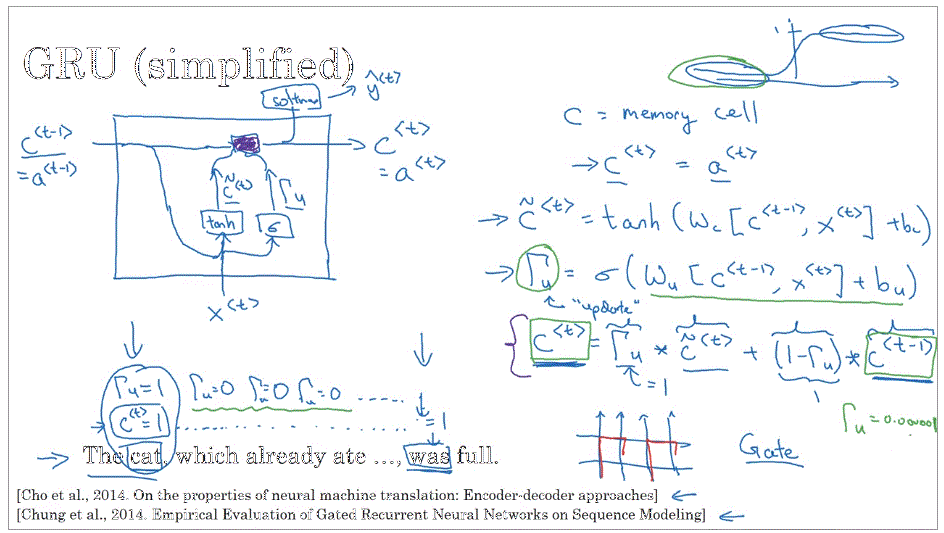 GRU (simplified)
softmax → ŷ<t>
c<t-1>
= a<t-1>
c<t>
= a<t>
c̃<t>
Γu
tanh
σ
x<t>
1
c = memory cell
→ c<t> = a<t>
→ c̃<t> = tanh (Wc [c<t-1>, x<t>] + bc)
→ Γu = σ (Wu [c<t-1>, x<t>] + bu)
"update"
c<t> = Γu * c̃<t> + (1-Γu) * c<t-1>
= 1
1
Γu = 0.000001
Gate
Γu = 1 Γu = 0 Γu = 0 Γu = 0 .....
c<t> = 1 ........... = 1
→ The cat, which already ate ..., was full.
[Cho et al., 2014. On the properties of neural machine translation: Encoder-decoder approaches] ←
[Chung et al., 2014. Empirical Evaluation of Gated Recurrent Neural Networks on Sequence Modeling] ←